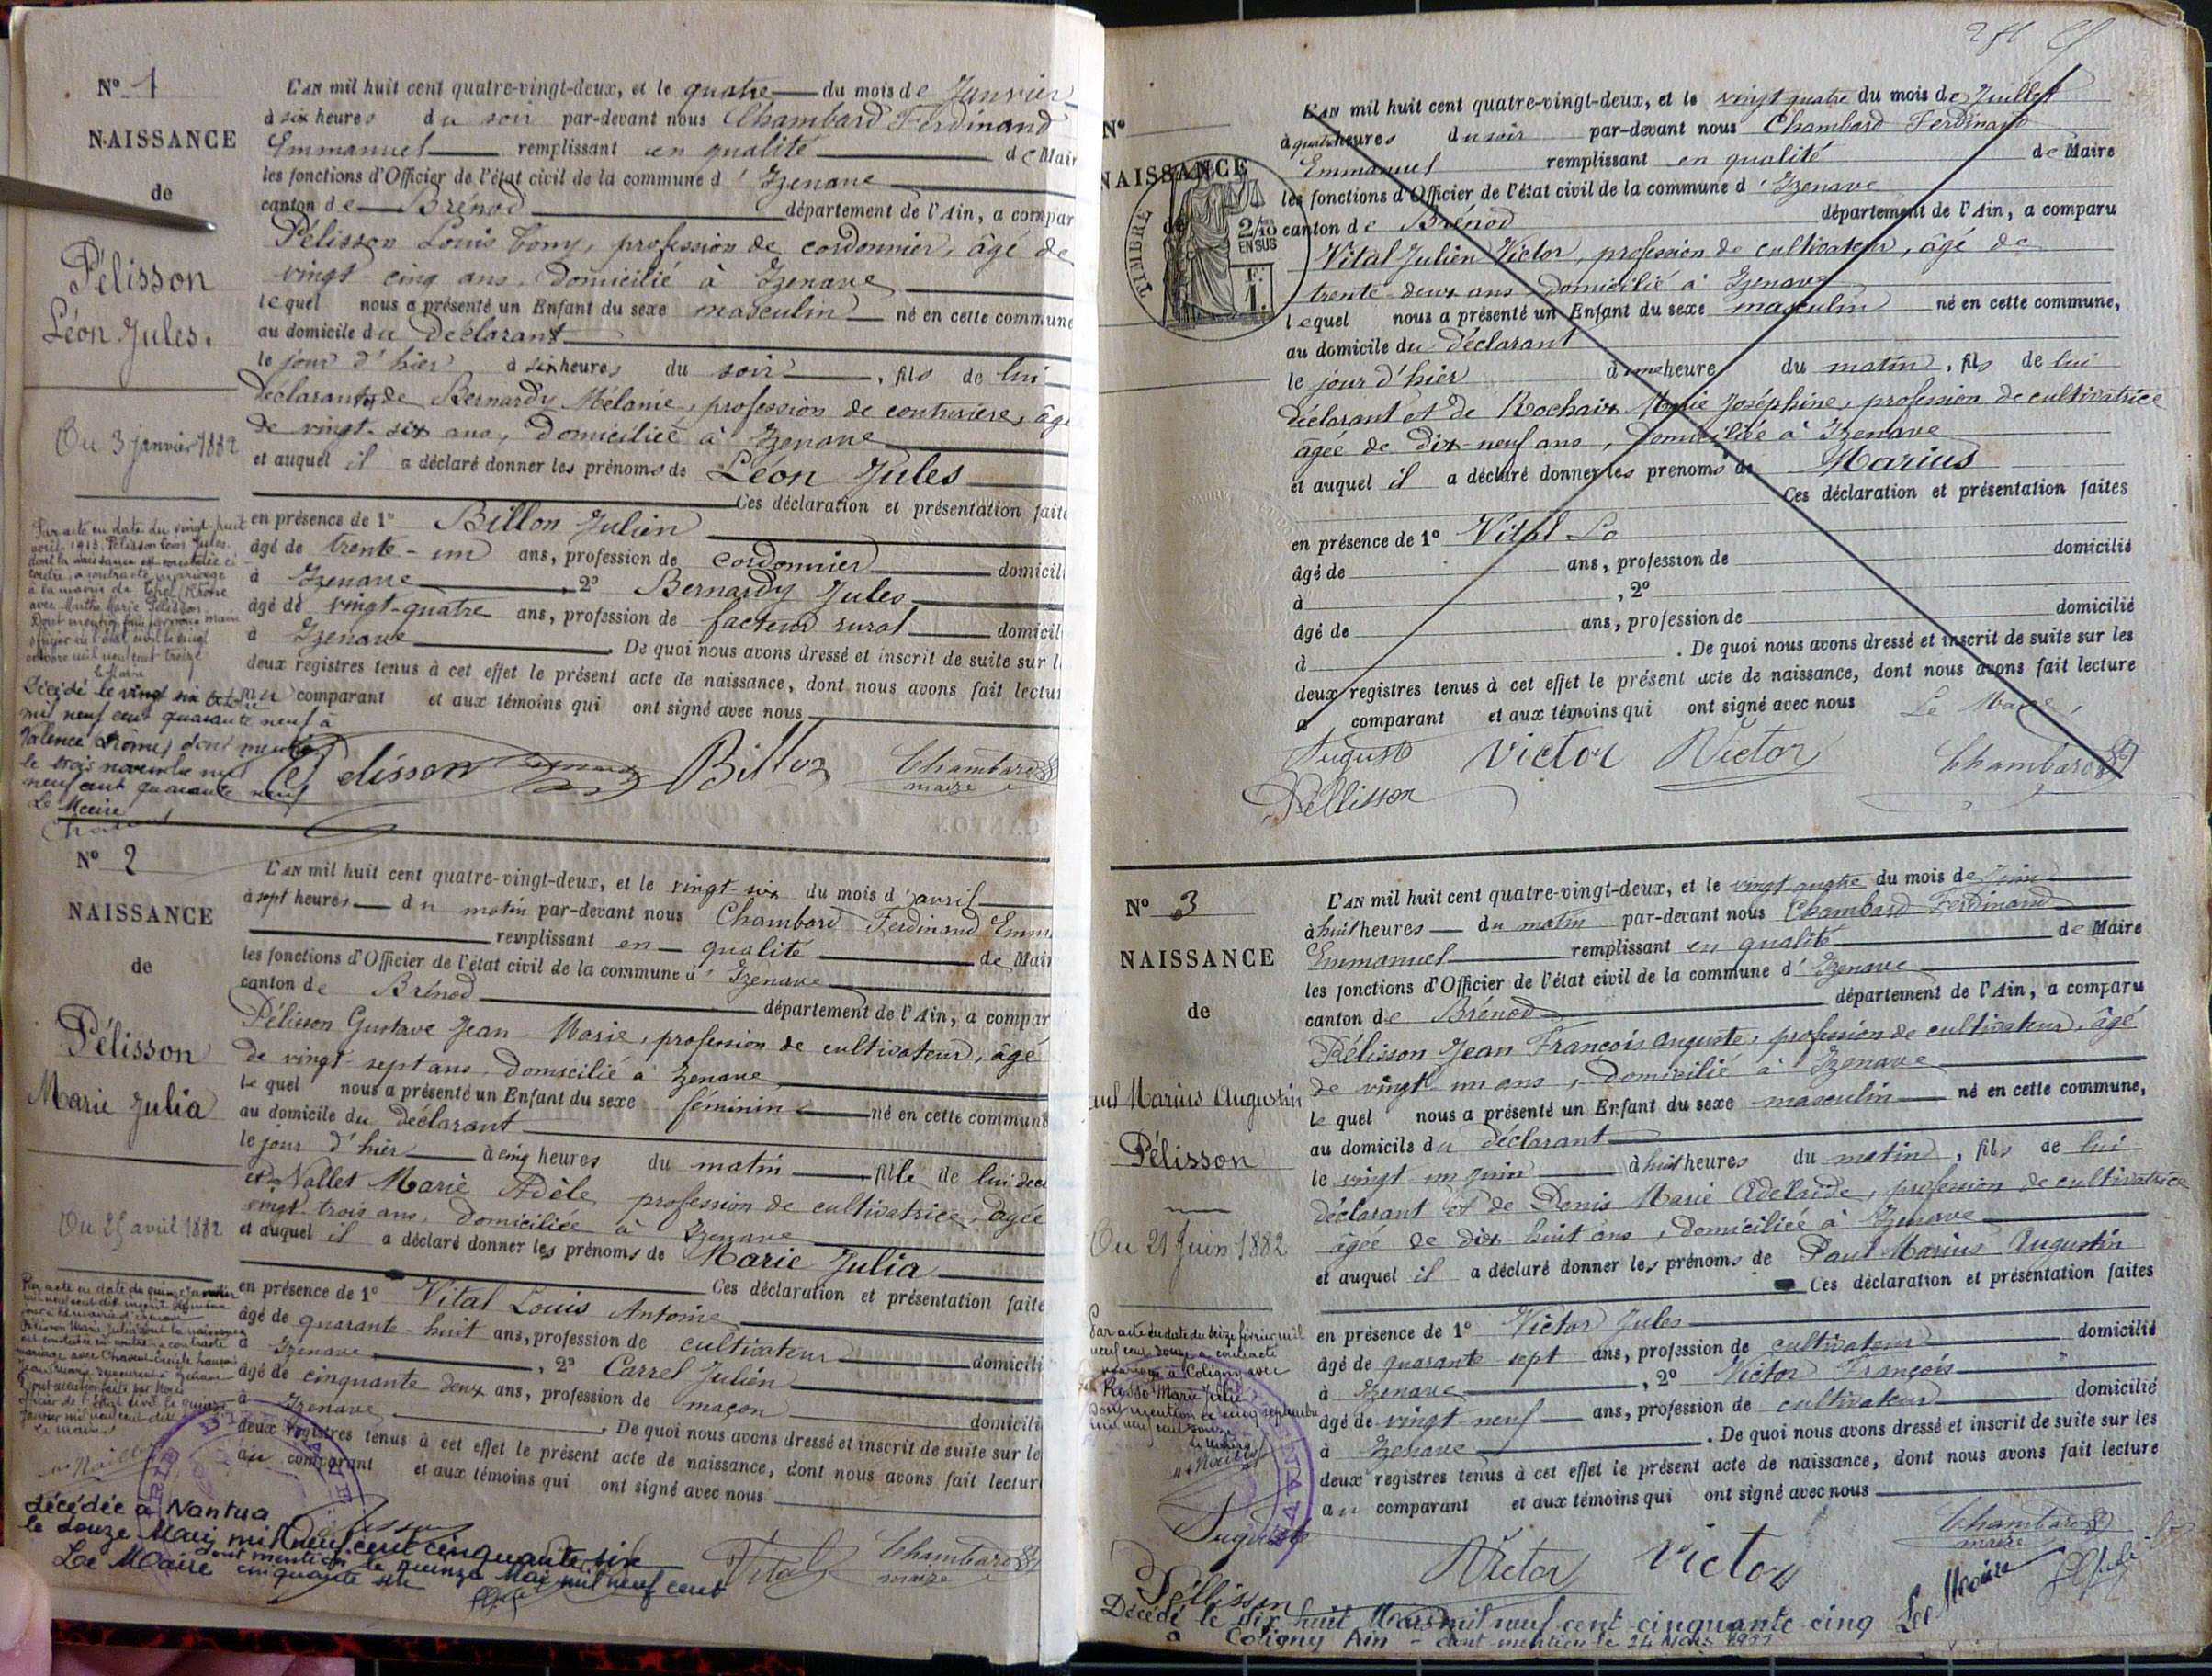 N° 1
NAISSANCE
de
Pélisson
Léon Jules.
Du 3 janvier 1882
Par acte en date du vingt-huit
avril 1913, Pélisson Léon Jules
dont la naissance est constatée ci
contre, a contracté mariage
à la mairie de (Rhône
avec Marthe Marie Pélisson
Dont mention faite par nous maire
officier de l'état civil le vingt
octobre mil neuf cent treize
Le Maire
Décédé le vingt six octobre
mil neuf cent quarante neuf à
Valence (Drôme) dont mention
le trois novembre mil
neuf cent quarante neuf
Le Maire
L'AN mil huit cent quatre-vingt-deux, et le quatre du mois de Janvier
à six heures du soir par-devant nous Chambard Ferdinand
Emmanuel remplissant en qualité de Mair
les fonctions d'Officier de l'état civil de la commune d' Izenave
canton de Brénod département de l'Ain, a compar
Pélisson Louis Tony, profession de cordonnier, âgé de
vingt-cinq ans, domicilié à Izenave
lequel nous a présenté un Enfant du sexe masculin né en cette commune
au domicile du déclarant
le jour d'hier à six heures du soir, fils de lui
déclarant et de Bernardy Mélanie, profession de couturière, âgé
de vingt-six ans, domiciliée à Izenave
et auquel il a déclaré donner les prénoms de Léon Jules
Ces déclaration et présentation faite
en présence de 1° Billon Julien
âgé de trente-un ans, profession de cordonnier domicili
à Izenave, 2° Bernardy Jules
âgé de vingt-quatre ans, profession de facteur rural domicil
à Izenave. De quoi nous avons dressé et inscrit de suite sur l
deux registres tenus à cet effet le présent acte de naissance, dont nous avons fait lectur
au comparant et aux témoins qui ont signé avec nous
Pelisson Billon Chambard
maire
N° 2
NAISSANCE
de
Pélisson
Marie Julia
Du 25 avril 1882
Par acte en date du quinze janvier
mil neuf cent dix inscrit
à la mairie d'Izenave
Pélisson Marie Julia dont la naissance
est constatée ci-contre a contracté
mariage avec
Dont mention faite par Nous
officier de l'état civil le quinze
janvier mil neuf cent dix
Le maire
L'AN mil huit cent quatre-vingt-deux, et le vingt-six du mois d'avril
à sept heures du matin par-devant nous Chambard Ferdinand Emm
remplissant en qualité de Mair
les fonctions d'Officier de l'état civil de la commune d' Izenave
canton de Brénod département de l'Ain, a compar
Pélisson Gustave Jean-Marie, profession de cultivateur, âgé
de vingt-sept ans, domicilié à Izenave
lequel nous a présenté un Enfant du sexe féminin né en cette commune
au domicile du déclarant
le jour d'hier à cinq heures du matin fille de lui décl
et Nallet Marie Adèle profession de cultivatrice, âgée
vingt-trois ans, domiciliée à Izenave
et auquel il a déclaré donner les prénoms de Marie Julia
Ces déclaration et présentation faite
en présence de 1° Vital Louis Antoine
âgé de quarante-huit ans, profession de cultivateur
à Izenave, 2° Carrel Julien domicili
âgé de cinquante deux ans, profession de maçon
à Izenave domicili
De quoi nous avons dressé et inscrit de suite sur le
deux registres tenus à cet effet le présent acte de naissance, dont nous avons fait lectur
au comparant et aux témoins qui ont signé avec nous
Vital Chambard
maire
décédée à Nantua
le douze Mai mil neuf cent cinquante six
dont mention le quinze Mai mil neuf cent
Le Maire cinquante six
N°
NAISSANCE
de
TIMBRE
2/10
EN SUS
F.
1.
L'AN mil huit cent quatre-vingt-deux, et le vingt quatre du mois de Juillet
à quatre heures du soir par-devant nous Chambard Ferdinand
Emmanuel remplissant en qualité de Maire
les fonctions d'Officier de l'état civil de la commune d' Izenave
canton de Brénod département de l'Ain, a comparu
Vital Julien Victor, profession de cultivateur, âgé de
trente-deux ans domicilié à Izenave
lequel nous a présenté un Enfant du sexe masculin né en cette commune,
au domicile du déclarant
le jour d'hier à une heure du matin, fils de lui
déclarant et de Rochaix Marie Joséphine, profession de cultivatrice
âgée de dix-neuf ans, domiciliée à Izenave
et auquel il a déclaré donner les prénoms de Marius
Ces déclaration et présentation faites
en présence de 1° Vital Lo
âgé de ans, profession de domicilié
à , 2°
âgé de ans, profession de domicilié
à . De quoi nous avons dressé et inscrit de suite sur les
deux registres tenus à cet effet le présent acte de naissance, dont nous avons fait lecture
a comparant et aux témoins qui ont signé avec nous Le Maire,
Auguste Victor Victor Chambard
Péllisson
N° 3
NAISSANCE
de
Marius Augustin
Pélisson
Du 21 Juin 1882
Par acte en date du seize février mil
neuf cent douze a contracté
mariage à Coligny avec
Rosso Marie Julie
Dont mention ce cinq septembre
mil neuf cent douze
Le Maire
L'AN mil huit cent quatre-vingt-deux, et le vingt quatre du mois de Juin
à huit heures du matin par-devant nous Chambard Ferdinand
Emmanuel remplissant en qualité de Maire
les fonctions d'Officier de l'état civil de la commune d' Izenave
canton de Brénod département de l'Ain, a comparu
Pélisson Jean François Auguste, profession de cultivateur, âgé
de vingt-un ans, domicilié à Izenave
lequel nous a présenté un Enfant du sexe masculin né en cette commune,
au domicile du déclarant
le vingt un Juin à huit heures du matin, fils de lui
déclarant et de Denis Marie Adélaïde, profession de cultivatrice
âgée de dix-huit ans, domiciliée à Izenave
et auquel il a déclaré donner les prénoms de Paul Marius Augustin
Ces déclaration et présentation faites
en présence de 1° Victor Jules
âgé de quarante-sept ans, profession de cultivateur domicilié
à Izenave, 2° Victor François
âgé de vingt-neuf ans, profession de cultivateur domicilié
à Izenave. De quoi nous avons dressé et inscrit de suite sur les
deux registres tenus à cet effet le présent acte de naissance, dont nous avons fait lecture
au comparant et aux témoins qui ont signé avec nous
Auguste Victor Victor Chambard
maire
Péllisson
Décédé le dix huit Mars mil neuf cent cinquante cinq Le Maire
à Coligny Ain - dont mention le 24 Mars 1955